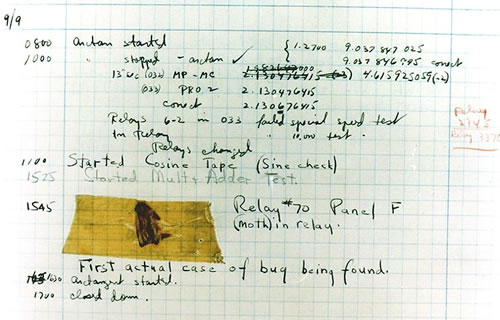 9/9
0800 Antan started { 1.2700 9.037 847 025
1000 " stopped - antan ✓ 9.037 846 795 conect
13"uc (032) MP-MC 2.130476415 4.615925059(-2)
(033) PRO 2 2.130476415
conect 2.130676415
Relays 6-2 in 033 failed special speed test
In Relay " 10,000 test.
Relay
3370
Relays changed
1100 Started Cosine Tape (Sine check)
1525 Started Mult+Adder Test.
1545 Relay #70 Panel F
(moth) in relay.
First actual case of bug being found.
1630 antangent started.
1700 closed down.